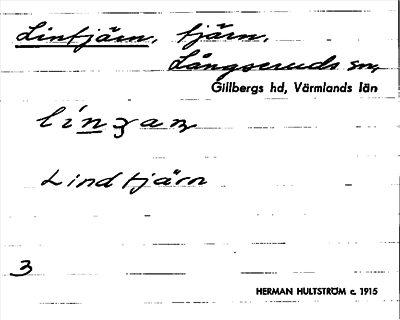 Lintjärn, tjärn,
Långseruds sn,
Gillbergs hd, Värmlands län
Lindtjärn
3
HERMAN HULTSTRÖM c. 1915